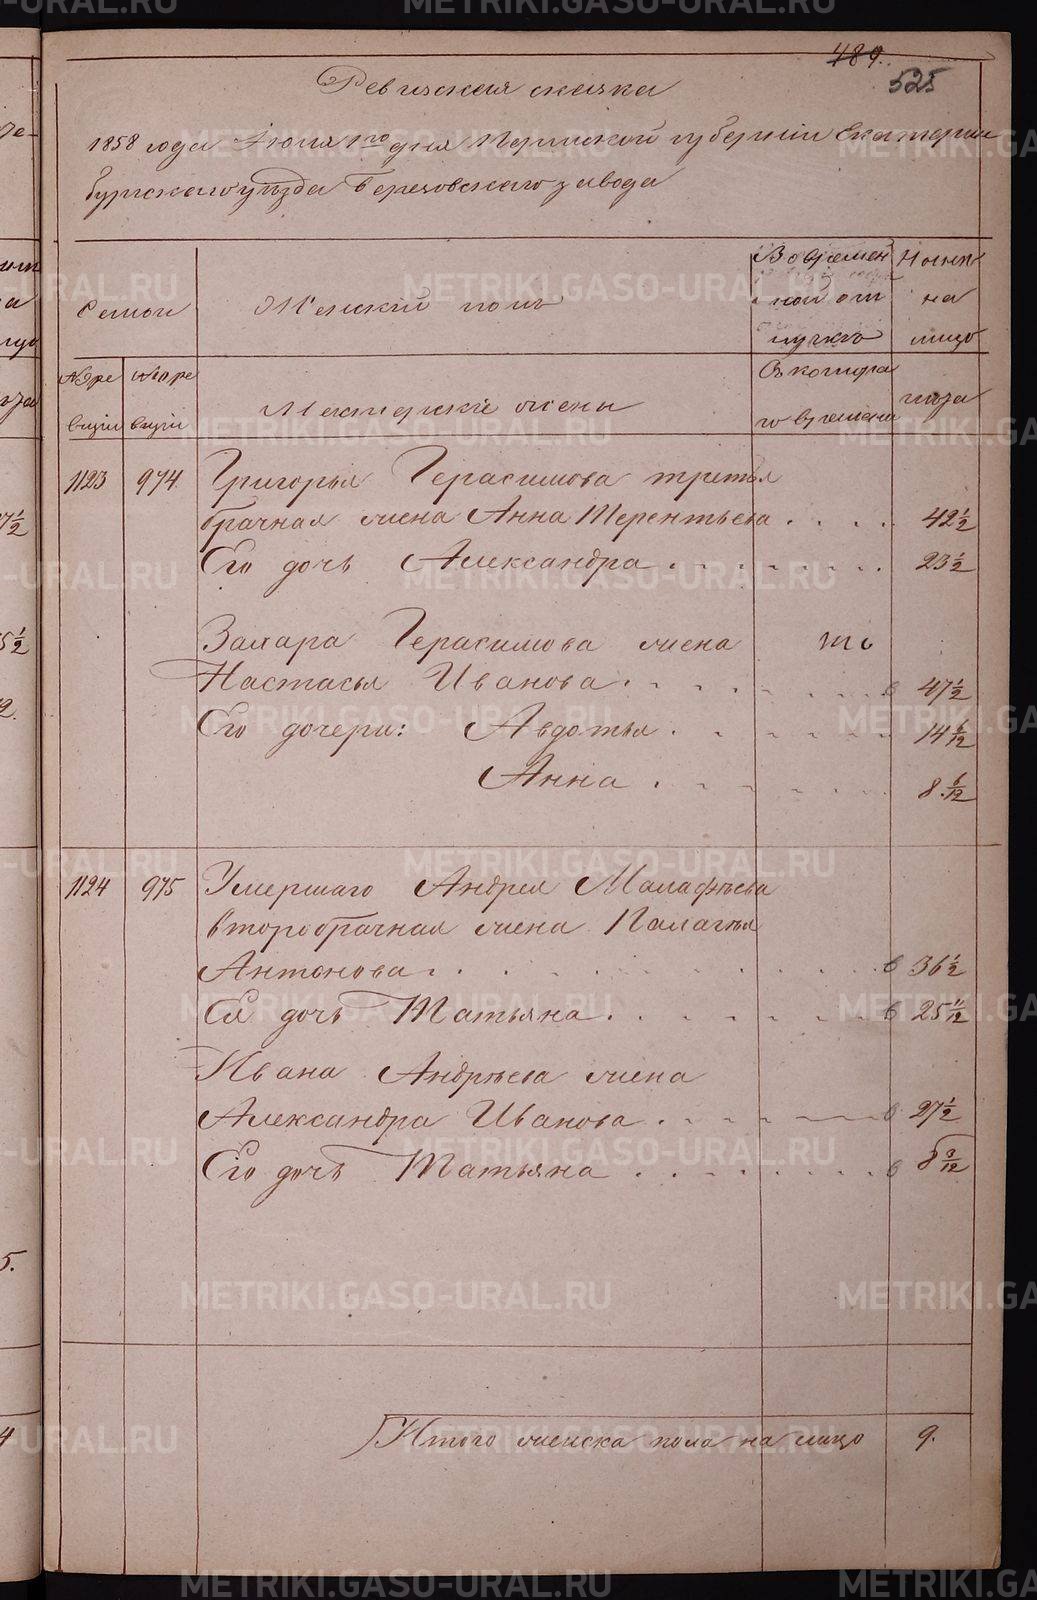 489.
525
Ревизская сказка
1858 года Июня 1го дня Пермской губерніи Екатерин
бургскаго уѣзда Березовскаго завода
Семьи
Женскій полъ
Во времен
ной от
лучкѣ
Нынѣ
на
лицо
№ ре
визіи
№ по ре
визіи
Мастерскіе жены
Съ котора
го времени
лѣта
1123 974 Григорья Герасимова третье
брачная жена Анна Терентьева . . . . 42 1/2
Его дочь Александра . . . . . . . . 23 1/2
Захара Герасимова жена
Настасья Иванова . . . . . . . . 47 1/2
Его дочери: Авдотья . . . . . . 14 6/12
Анна . . . . . . 8 6/12
1124 975 Умершаго Андрея Малафѣева
второбрачная жена Палагья
Антонова . . . . . . . . . . 36 1/2
Ея дочь Татьяна . . . . . . . . 25 11/12
Ивана Андрѣева жена
Александра Иванова . . . . . . 27 1/2
Его дочь Татьяна . . . . . . . . 8 3/12
Итого женска пола на лицо 9.
METRIKI.GASO-URAL.RU